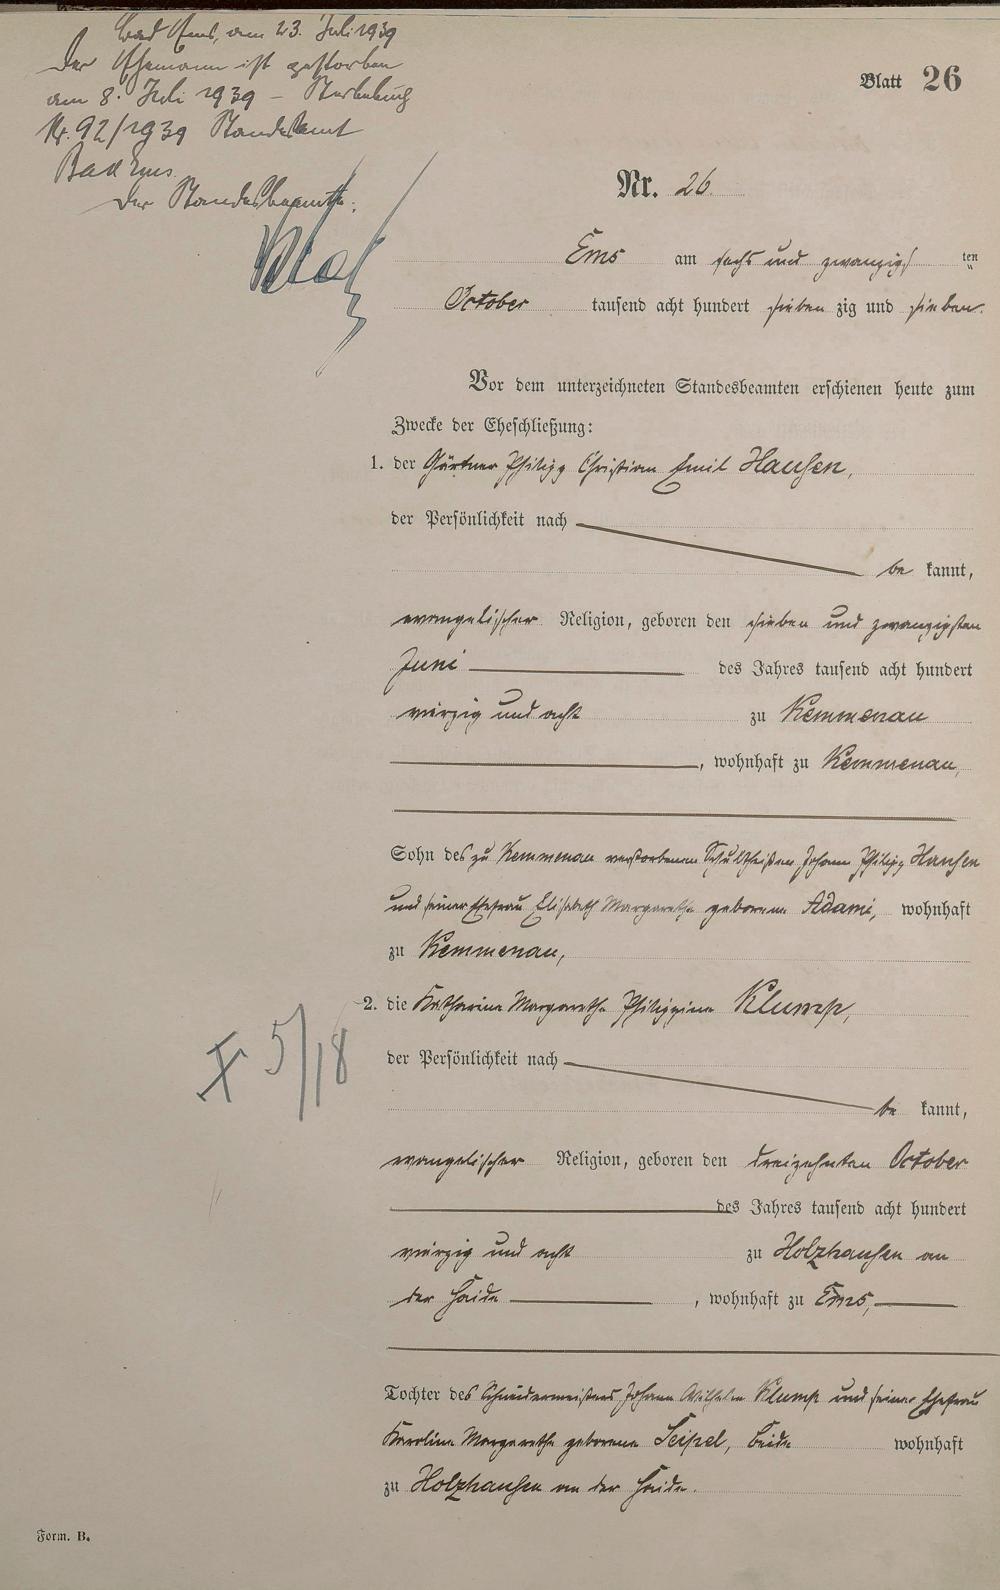 Bad Ems, am 23. Juli 1939
Der Ehemann ist gestorben
am 8. Juli 1939 –
Nr. 92/1939 Standesamt
Bad Ems.
Der Standesbeamte:
Blatt 26
Nr. 26.
Ems am sechs und zwanzigsten
October tausend acht hundert sieben zig und sieben.
Vor dem unterzeichneten Standesbeamten erschienen heute zum
Zwecke der Eheschließung:
1. der Gärtner Philipp Christian Emil Hansen,
der Persönlichkeit nach
be kannt,
evangelischer Religion, geboren den sieben und zwanzigsten
Juni des Jahres tausend acht hundert
vierzig und acht zu Kemmenau
, wohnhaft zu Kemmenau,
Sohn des zu Kemmenau verstorbenen Schultheißen Johann Philipp Hansen
und seiner Ehefrau Elisabeth Margarethe geborene Adami, wohnhaft
zu Kemmenau,
2. die Katharine Margarethe Philippine Klump,
der Persönlichkeit nach
be kannt,
evangelischer Religion, geboren den dreizehnten October
des Jahres tausend acht hundert
vierzig und acht zu Holzhausen an
der Haide , wohnhaft zu Ems,
5/18
Tochter des Schneidermeisters Johann Wilhelm Klump und seiner Ehefrau
Karoline Margarethe geborene Seipel, beide wohnhaft
zu Holzhausen an der Haide.
Form. B.